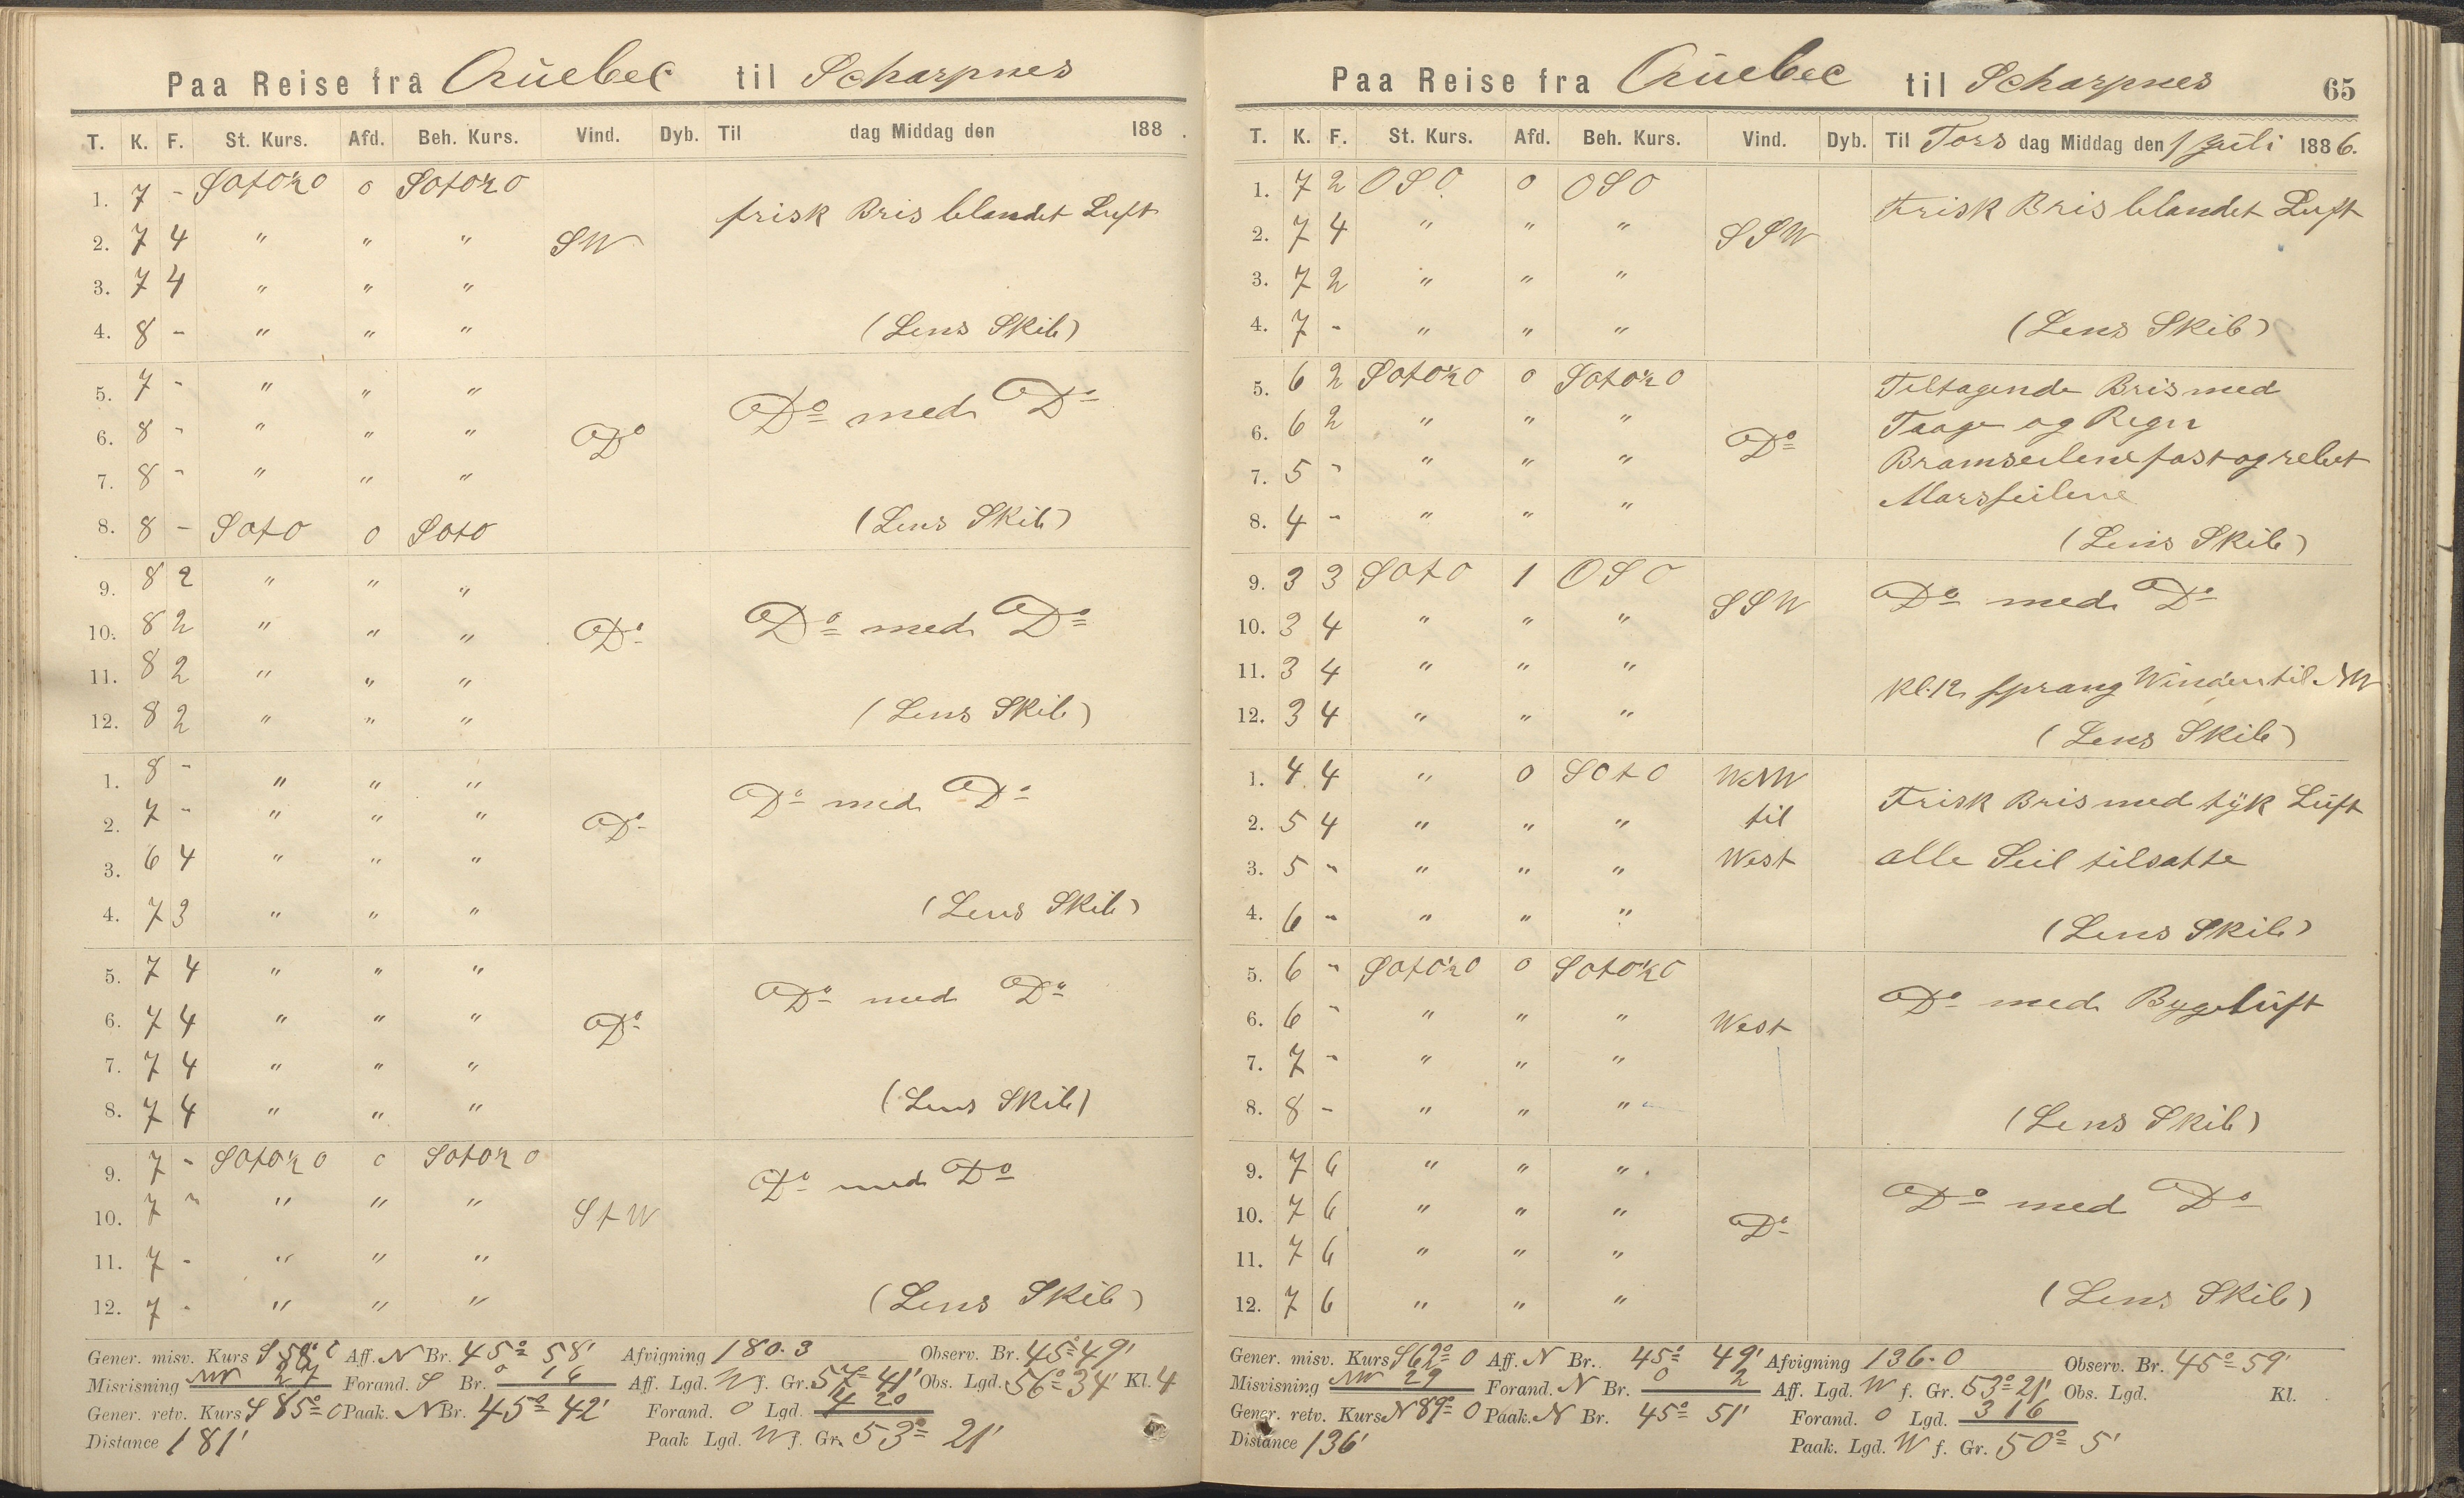 Paa Reise fra Quebec til Scharpnes
T. K. F. St. Kurs. Afd. Beh. Kurs. Vind. Dyb. Til dag Middag den 188 .
1. 7 - SOtO½O 0 SOtO½O
frisk Bris blandet Luft
2. 7 4 " " " SW
3. 7 4 " " "
4. 8 - " " " (Lens Skib)
5. 7 - " " "
Do med Do
6. 8 - " " " Do
7. 8 - " " "
8. 8 - SOtO 0 SOtO (Lens Skib)
9. 8 2 " " "
10. 8 2 " " " Do Do med Do
11. 8 2 " " "
12. 8 2 " " " (Lens Skib)
1. 8 - " " " Do med Do
2. 7 - " " " Do
3. 6 4 " " "
4. 7 3 " " " (Lens Skib)
5. 7 4 " " " Do med Do
6. 7 4 " " " Do
7. 7 4 " " "
8. 7 4 " " " (Lens Skib)
9. 7 - SOtO½O 0 SOtO½O Do med Do
10. 7 - " " " StW
11. 7 - " " "
12. 7 - " " " (Lens Skib)
Gener. misv. Kurs S 58° O Aff. N Br. 45° 58' Afvigning 180.3 Observ. Br. 45° 49'
Misvisning NW 27 Forand. S Br. 0 16 Aff. Lgd. W f. Gr. 57° 41' Obs. Lgd. 56° 34' Kl. 4
Gener. retv. Kurs S 85° O Paak. N Br. 45° 42' Forand. O Lgd. 4 20
Distance 181' Paak Lgd. W f. Gr. 53° 21'
Paa Reise fra Quebec til Scharpnes 65
T. K. F. St. Kurs. Afd. Beh. Kurs. Vind. Dyb. Til Torsdag Middag den 1 Juli 1886.
1. 7 2 OSO 0 OSO Frisk Bris blandet Luft
2. 7 4 " " " SSW
3. 7 2 " " "
4. 7 - " " " (Lens Skib)
5. 6 2 SOtO½O 0 SOtO½O Tiltagende Bris med
6. 6 2 " " " Do Taage og Regn
7. 5 - " " " Bramseilene fast og rebet
8. 4 - " " " Marsseilene
(Lens Skib)
9. 3 3 SOtO 1 OSO Do med Do
10. 3 4 " " " SSW
11. 3 4 " " " Kl. 12 sprang Vinden til NW
12. 3 4 " " " (Lens Skib)
1. 4 4 " 0 SOtO WNW
2. 5 4 " " " til Frisk Bris med tyk Luft
3. 5 - " " " West alle Seil tilsatte
4. 6 - " " " (Lens Skib)
5. 6 - SOtO½O 0 SOtO½O
6. 6 - " " " West Do med Bygeluft
7. 7 - " " "
8. 8 - " " " (Lens Skib)
9. 7 6 " " "
10. 7 6 " " " Do Do med Do
11. 7 6 " " "
12. 7 6 " " " (Lens Skib)
Gener. misv. Kurs S 62° O Aff. N Br. 45° 49' Afvigning 136.0 Observ. Br. 45° 59'
Misvisning NW 29 Forand. N Br. 0 2 Aff. Lgd. W f. Gr. 53° 21' Obs. Lgd. Kl.
Gener. retv. Kurs N 89° O Paak. N Br. 45° 51' Forand. O Lgd. 3 16
Distance 136' Paak. Lgd. W f. Gr. 50° 5'